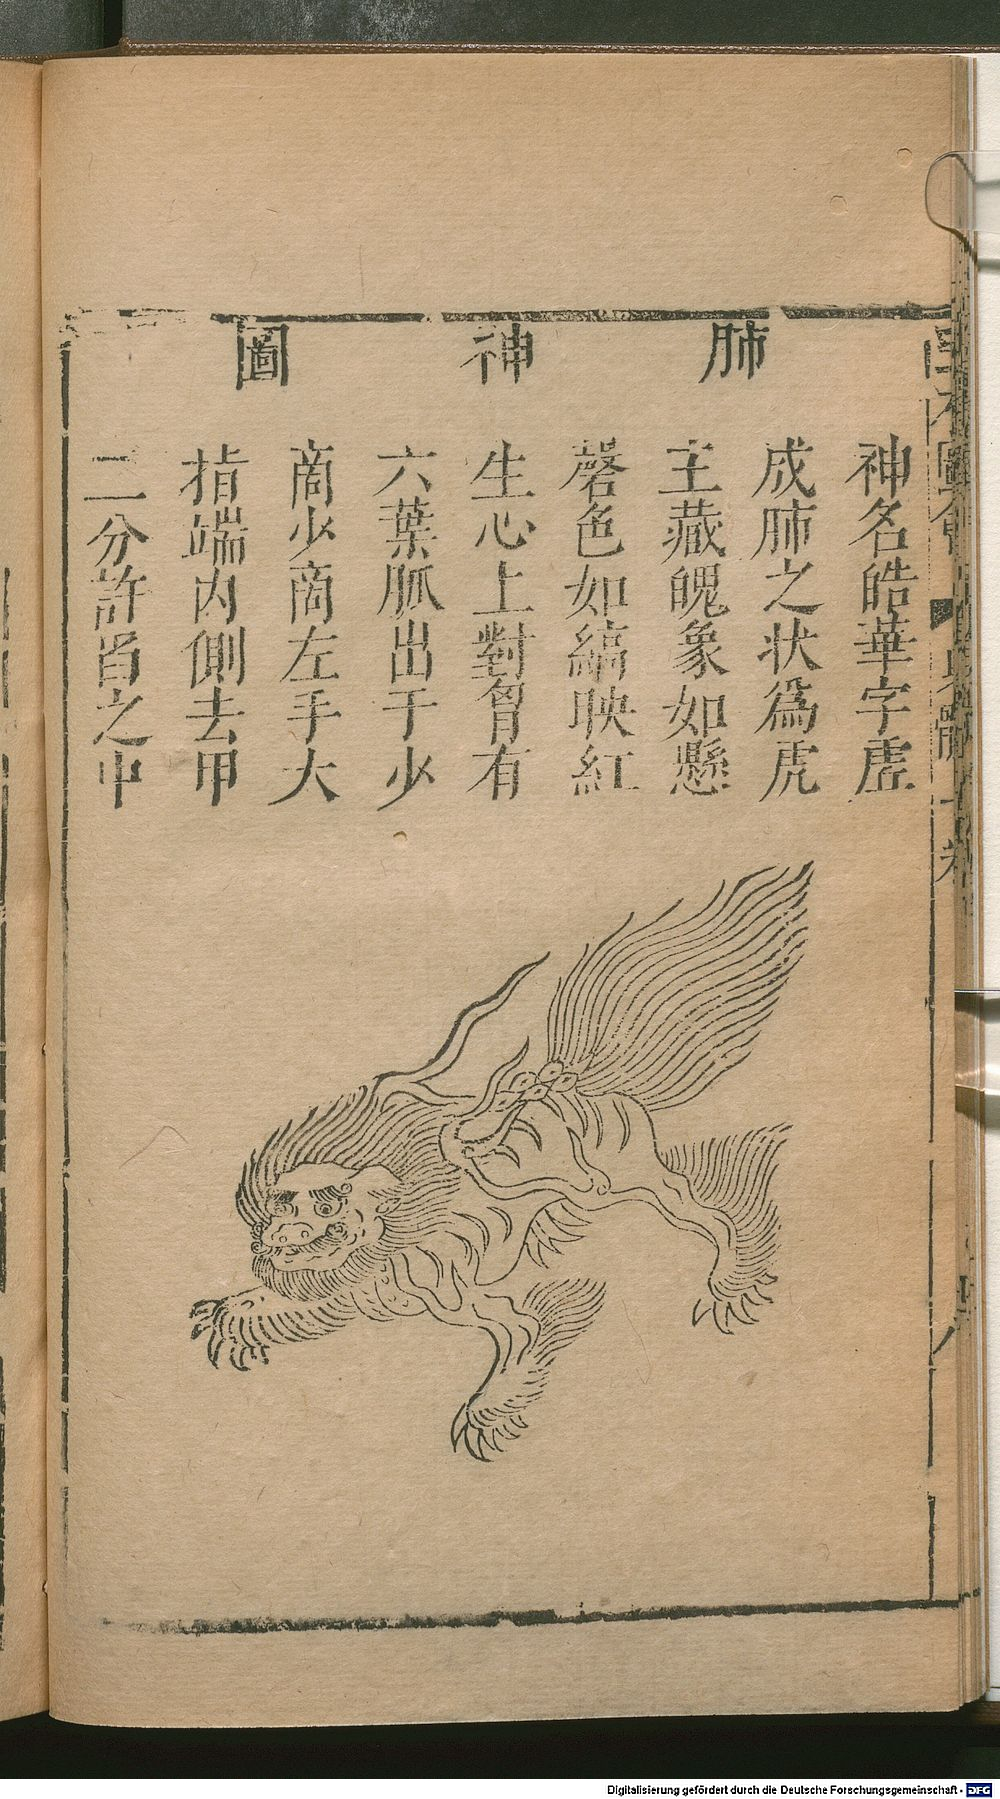 肺神圖
神名皓華字虛
成肺之状爲虎
主藏魄象如懸
磬色如縞映紅
生心上對胷有
六葉脈出于少
商少商左手大
指端內側去甲
二分許首之中
Digitalisierung gefördert durch die Deutsche Forschungsgemeinschaft - DFG